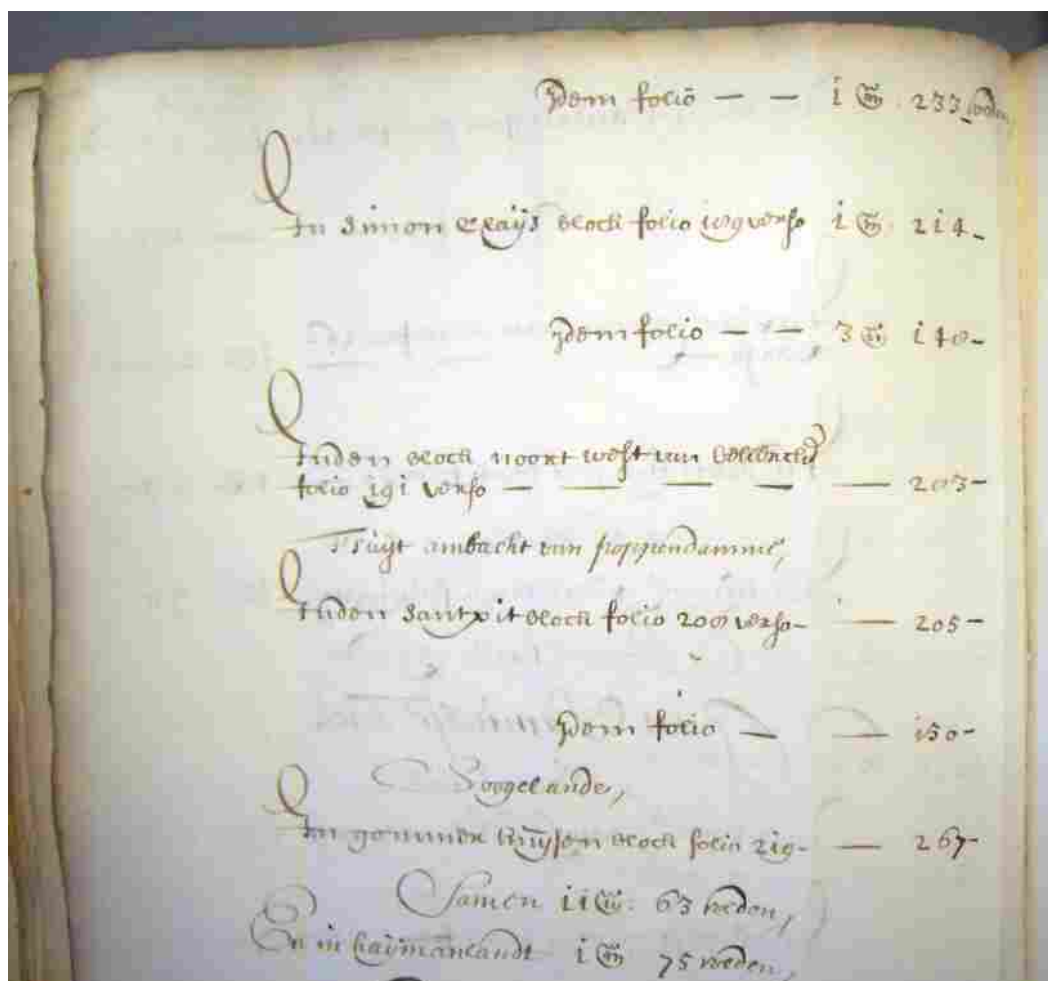 Idem folio — — i G: 233 roeden,
In Simon Claijs block folio 199 verso i G: 214-
Idem folio — — 3 G: 140-
Inden block noort west van
folio 191 verso — — — — — 203-
Tsuijt ambacht van poppendamme,
Inden Santpit block folio 200 verso- — 205-
Idem folio — — 150-
Googelande,
In gommer block folio 219- — 267-
Samen ii G: 63 roeden,
En in caijmanlandt i G 75 roeden,